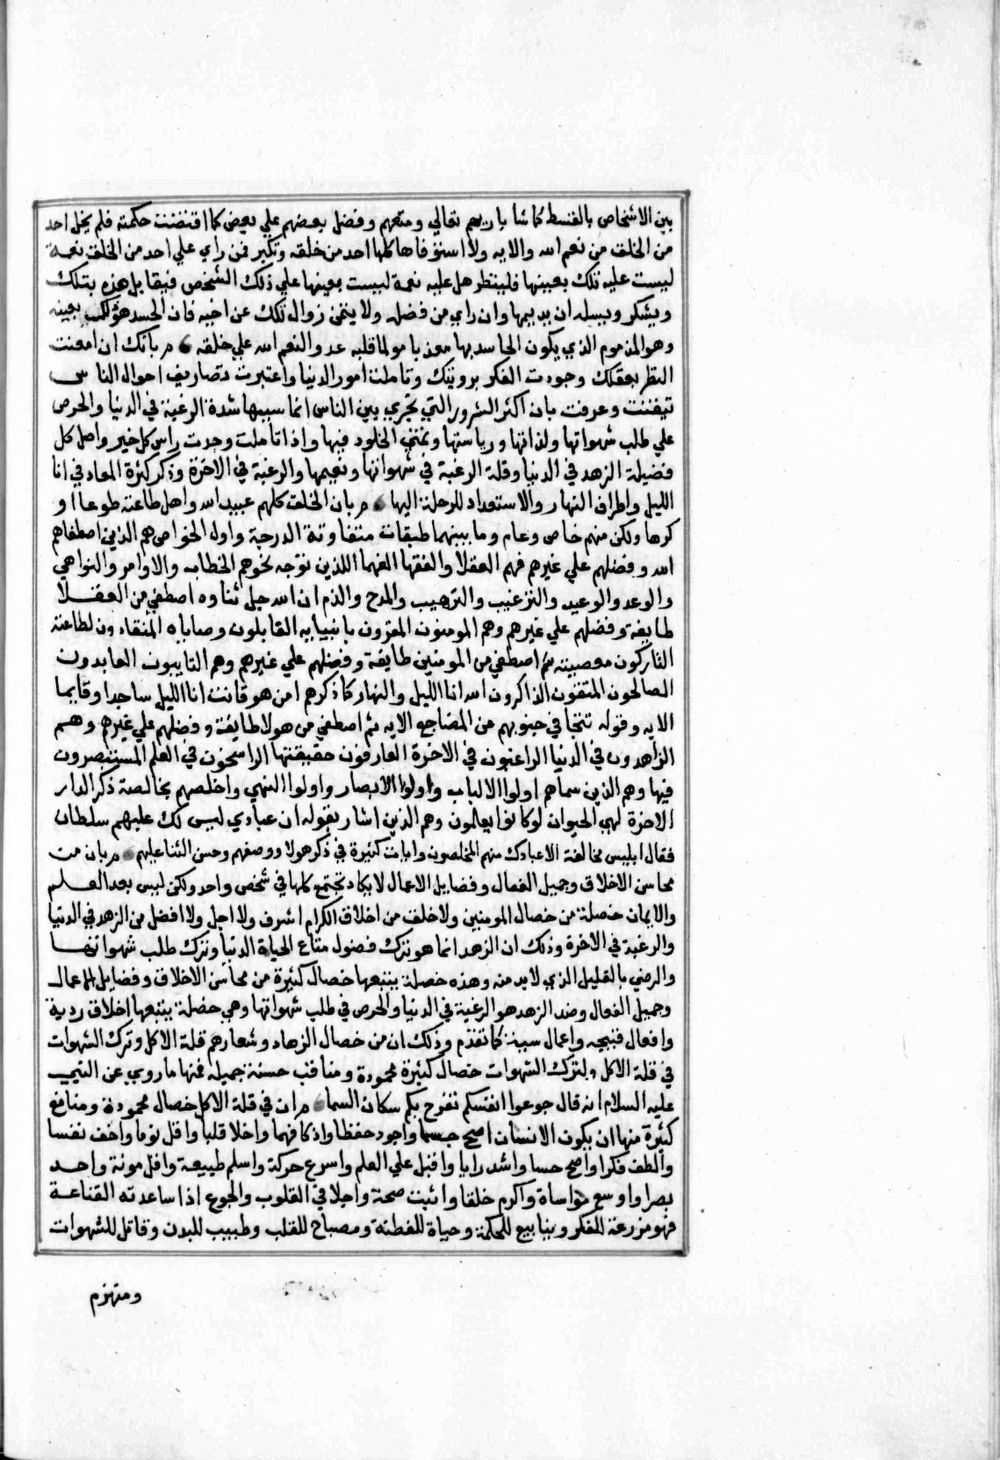 بين الاشخاص بالقسط كما شا باريهم تعالي ومتعهم وفضل بعضهم علي بعض كما اقتضت حكمته فلم يخل احد
من الخلف من نعم الله والايه ولا استوفاها كلها احد من خلقه وتكبر فمن راي علي احد من الخلف نعمة
ليست عليه تلك بعينها فلينظر هل عليه نعمة ليست بعينها علي ذلك الشخص فيقابل هذه بتلك
ويشكر ويسله ان يديمها وان راي من فضله ولا يتمني زوال تلك عن اخيه فان الحسد هو بعينه
وهو المذموم الذي يكون الحاسد بها معذبا مولما قلبه عدو النعم الله علي خلقه م بانك ان امعنت
النظر بعقلك وجودت الفكر برويتك وتاملت امور الدنيا واعتبرت تصاريف احوال الناس
تيقنت وعرفت بان اكثر الشرور التي تجري بين الناس انما سببها شدة الرغبة في الدنيا والحرص
علي طلب شهواتها ولذاتها ورياستها وتمني الخلود فيها واذا تاملت وجدت راس كل خير واصل كل
فضيلة الزهد في الدنيا وقلة الرغبة في شهواتها ونعيمها والرغبة في الاخرة وذكر كثرة المعاد في انا
الليل واطراف النهار والاستعداد للرحلة اليها م بان الخلف كلهم عبيد الله واهل طاعته طوعا او
كرها ولكن منهم خاص وعام وما بينهما طبقات متفاوتة الدرجة واوله الخواص هم الذين اصطفاهم
الله وفضلهم علي غيرهم فهم العقلا والفقها الفهما اللذين توجه نحوهم الخطاب والاوامر والنواهي
والوعد والوعيد والترغيب والترهيب والمدح والذم ان الله جل ثناوه اصطفي من العقلا
طايفة وفضلهم علي غيرهم وهم المومنون المقرون بانبيايه القابلون وصاياه المنقادون لطاعته
التاركون معصيته ثم اصطفي من المومنين طايفة وفضلهم علي غيرهم وهم التايبون العابدون
الصالحون المتقون الذاكرون الله انا الليل والنهار كما ذكرهم امن هو قانت انا الليل ساجدا وقايما
الايه وقوله تتجافي جنوبهم من المضاجع الايه ثم اصطفي من هولا طايفة وفضلهم علي غيرهم وهم
الزاهدون في الدنيا الراغبون في الاخرة العارفون حقيقتها الراسخون في العلم المستبصرون
فيها وهم الذين سماهم اولوا الالباب واولوا الابصار واولوا النهي واخلصهم بخالصة ذكر الدار
الاخرة لهي الحيوان لوكانوا يعلمون وهم الذين اشار بقوله ان عبادي ليس لك عليهم سلطان
فقال ابليس مخالفة الاعبادك منهم المخلصون وايات كثيرة في ذكر هولا ووصفهم وحسن الثنا عليهم م بان من
محاسن الاخلاق وجميل الفعال وفضايل الاعمال لايكاد تجتمع كلها في شخص واحد ولكن ليس بعد العلم
والايمان خصلة من خصال المومنين ولا خلف من اخلاق الكرام اشرف ولا اجل ولا افضل من الزهد في الدنيا
والرغبة في الاخرة وذلك ان الزهد انما هو ترك فضول متاع الحياة الدنيا وترك طلب شهواتها
والرضي بالقليل الذي لابد منه وهذه خصلة يتبعها خصال كثيرة من محاسن الاخلاق وفضايل الاعمال
وجميل الفعال وضد الزهد هو الرغبة في الدنيا والحرص في طلب شهواتها وهي خصلة يتبعها اخلاق ردية
وافعال قبيحه واعمال سيئة كما تقدم وذلك ان من خصال الزهاد وشعارهم قلة الاكل وترك الشهوات
في قلة الاكل ولترك الشهوات خصال كثيرة محمودة ومناقب حسنة جميله فمنها ماروي عن النبي
عليه السلام انه قال جوعوا انفسكم تفرح بكم سكان السما م ان في قلة الاكل خصال محمودة ومنافع
كثيرة منها ان يكون الانسان اصح جسما واجود حفظا واذكا فهما واخلا قلبا واقل نوما واخف نفسا
والطف فكرا واصح حسا واشد رايا واقبل علي العلم واسرع حركة واسلم طبيعة واقل مونة واحد
بصرا واوسع مواساة واكرم خلقا واثبت صحة واجلا في القلوب والجوع اذا ساعدته القناعة
فهو مزرعة للفكر وينابيع للحكمة وحياة للفطنة ومصباح للقلب وطبيب للبدن وقاتل للشهوات
ومتهزم